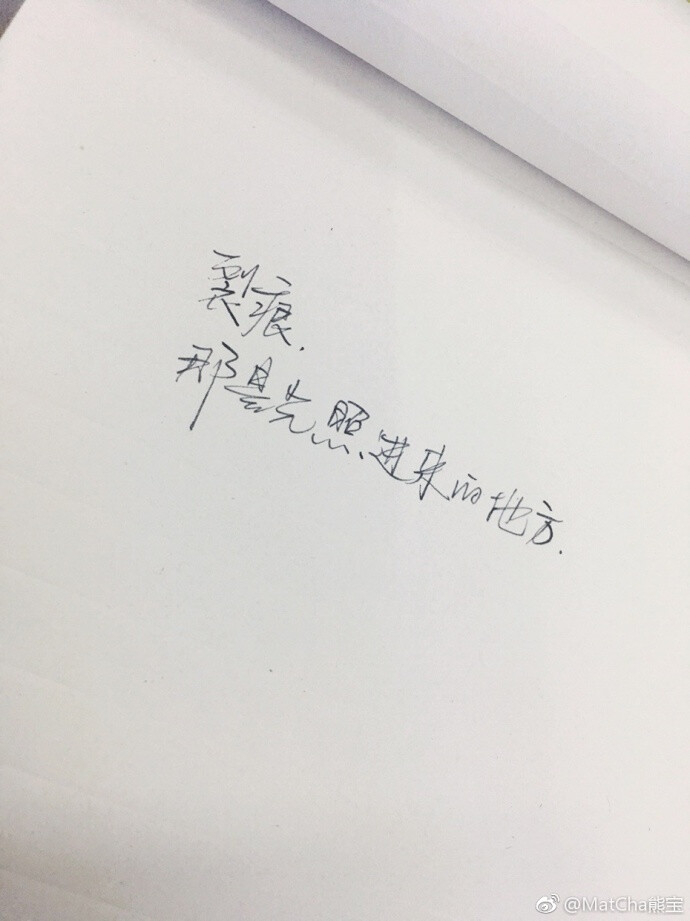 裂痕.
那是光照进来的地方.
@MatCha熊宝